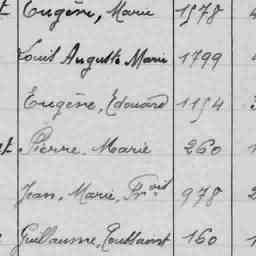 Eugène, Marie 1578
Louis Auguste Marie 1799
Eugène, Edouard 1154
Pierre Marie 260
Jean, Marie, Fr.ois 978 2
Guillaume, Toussaint 160 1